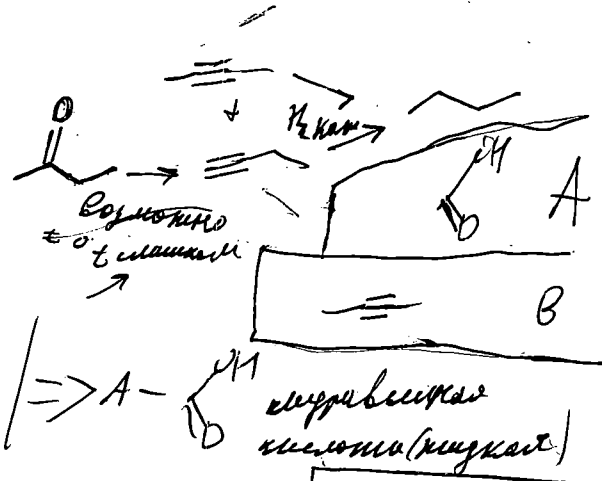 O
+
H₂ кат
OH
A
O
возможно
t° t слишком
B
=> A - OH
O
муравьиная
кислота (жидкая)